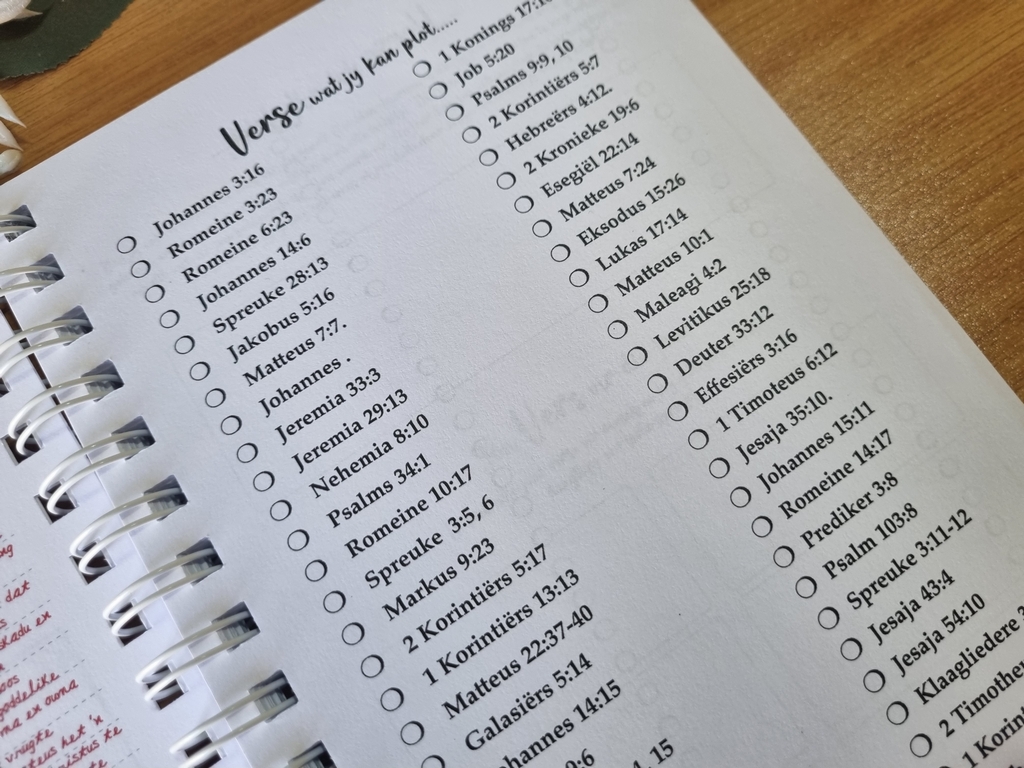 Verse wat jy kan plot.....
Johannes 3:16
Romeine 3:23
Romeine 6:23
Johannes 14:6
Spreuke 28:13
Jakobus 5:16
Matteus 7:7.
Johannes .
Jeremia 33:3
Jeremia 29:13
Nehemia 8:10
Psalms 34:1
Romeine 10:17
Spreuke 3:5, 6
Markus 9:23
2 Korintiërs 5:17
1 Korintiërs 13:13
Matteus 22:37-40
Galasiërs 5:14
Johannes 14:15
9:6
15
1 Konings
Job 5:20
Psalms 9:9, 10
2 Korintiërs 5:7
Hebreërs 4:12.
2 Kronieke 19:6
Esegiël 22:14
Matteus 7:24
Eksodus 15:26
Lukas 17:14
Matteus 10:1
Maleagi 4:2
Levitikus 25:18
Deuter 33:12
Effesiërs 3:16
1 Timoteus 6:12
Jesaja 35:10.
Johannes 15:11
Romeine 14:17
Prediker 3:8
Psalm 103:8
Spreuke 3:11-12
Jesaja 43:4
Jesaja 54:10
Klaagliedere
2 Timothe
1 Korint
dat
skadu ex
goddelike
ma ex ouma
vrugte
teus het 'n
ristus te